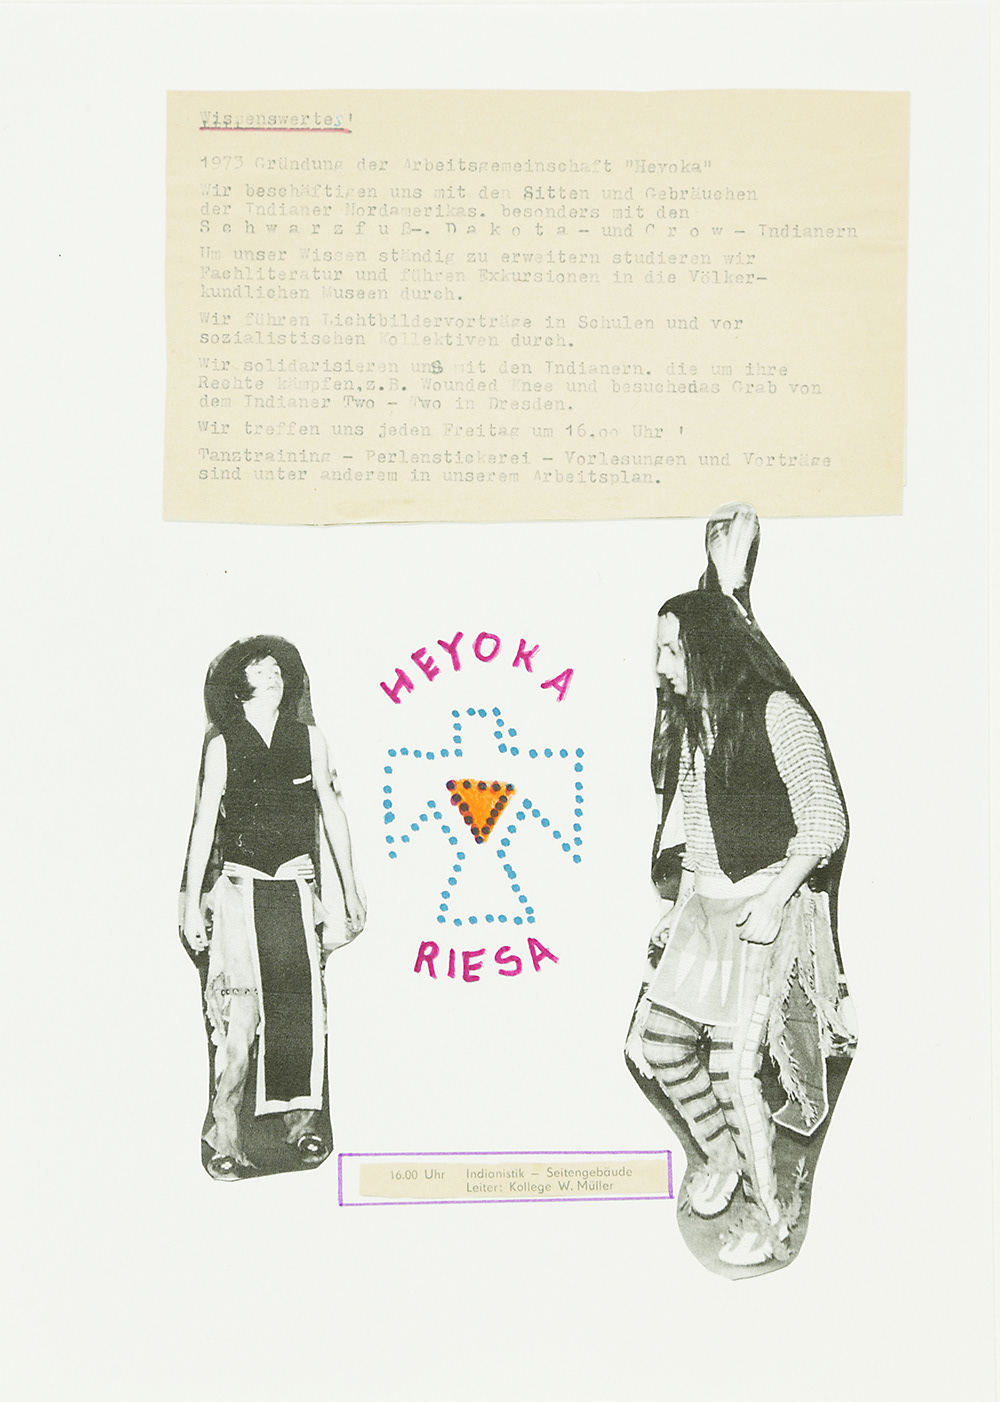 Wissenswertes!
1973 Gründung der Arbeitsgemeinschaft "Heyoka"
Wir beschäftigen uns mit den Sitten und Gebräuchen
der Indianer Nordamerikas. besonders mit den
S c h w a r z f u ß-. D a k o t a - und C r o w - Indianern
Um unser Wissen ständig zu erweitern studieren wir
Fachliteratur und führen Exkursionen in die Völker-
kundlichen Museen durch.
Wir führen Lichtbildervorträge in Schulen und vor
sozialistischen Kollektiven durch.
Wir solidarisieren uns mit den Indianern. die um ihre
Rechte kämpfen,z.B. Wounded Knee und besuchendas Grab von
dem Indianer Two - Two in Dresden.
Wir treffen uns jeden Freitag um 16.oo Uhr !
Tanztraining - Perlenstickerei - Vorlesungen und Vorträge
sind unter anderem in unserem Arbeitsplan.
HEYOKA
RIESA
16.00 Uhr Indianistik – Seitengebäude
Leiter: Kollege W. Müller